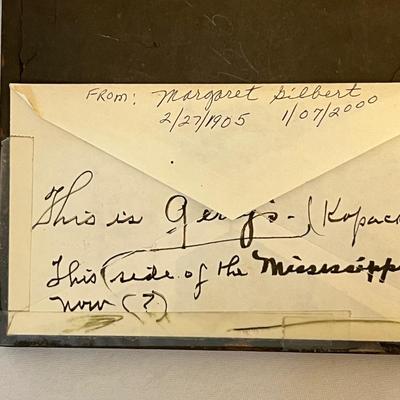 FROM: Margaret Gilbert
2/27/1905 1/07/2000
This is Gery's - (Kopac
This (side of the Mississipp
now (?)